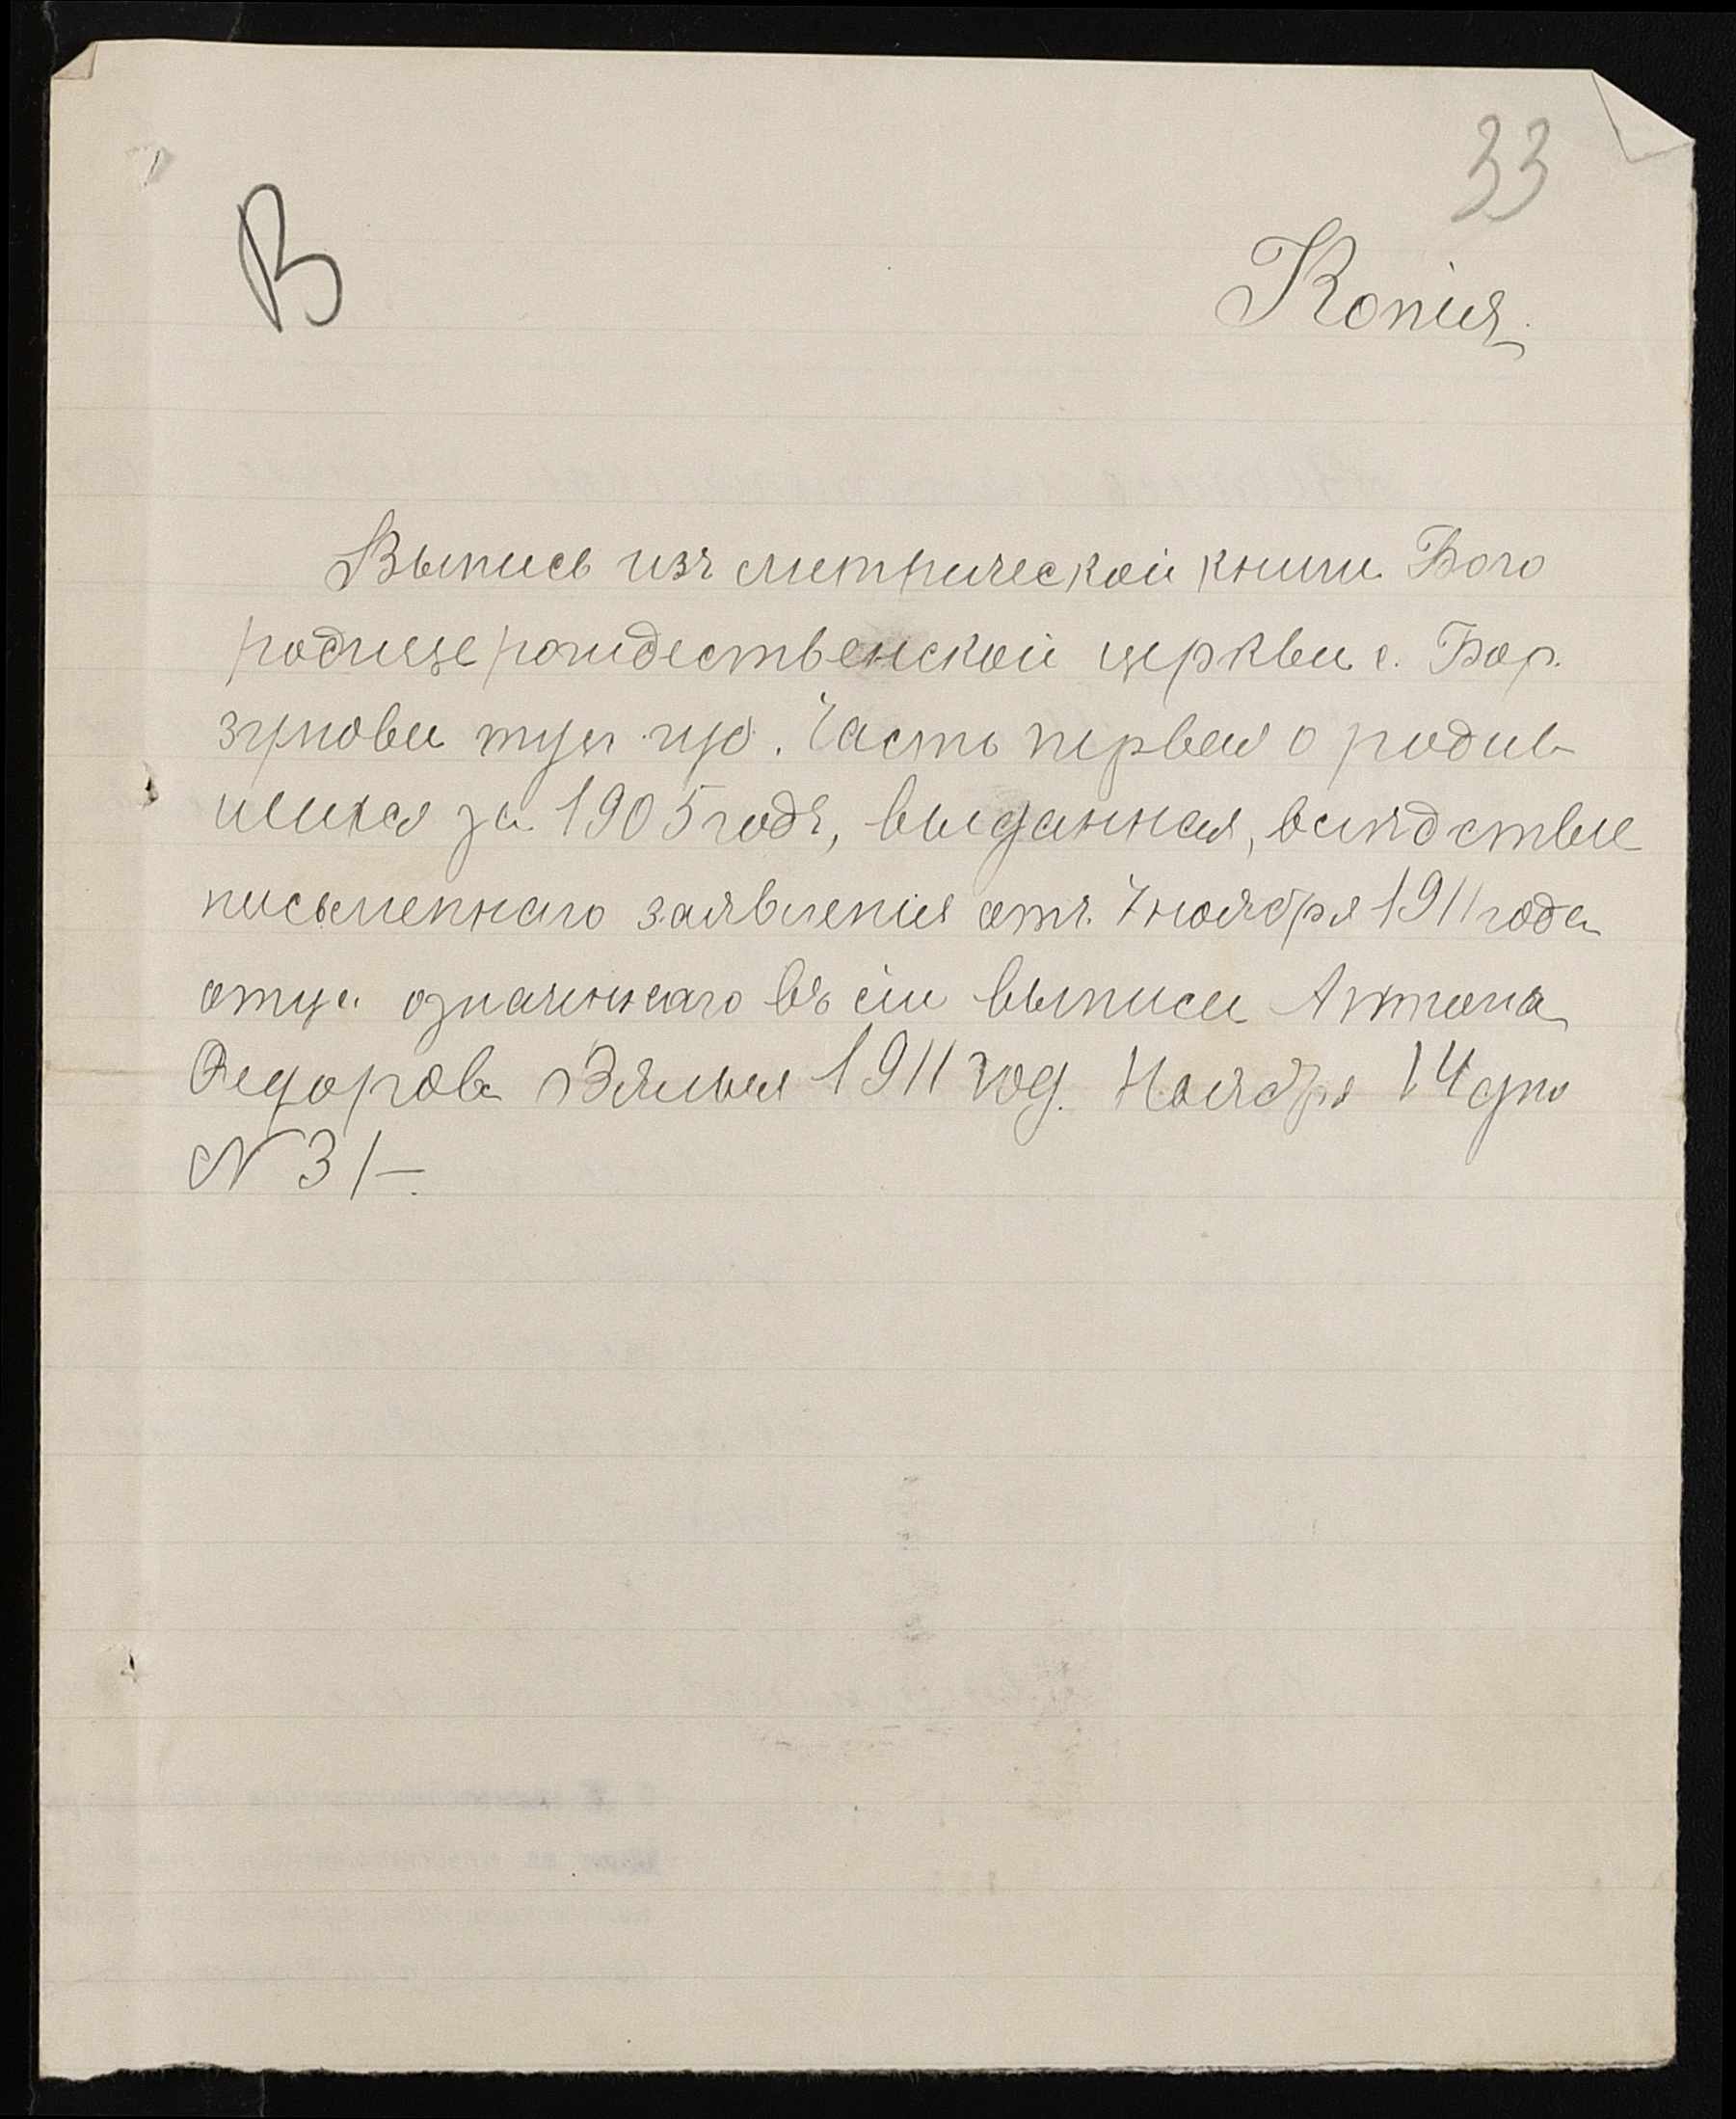 33
В
Копія.
Выпись изъ метрической книги Бого
родицерождественской церкви с. Бор.
зуновки
Часть первая о родив-
шихся за 1905 годъ, выданная, вслѣдствіе
письменнаго заявленія отъ 7 ноября 1911 года
отца означеннаго въ сей выписи Антона
Федорова 1911 год. Ноября 14 дня
N 31-.